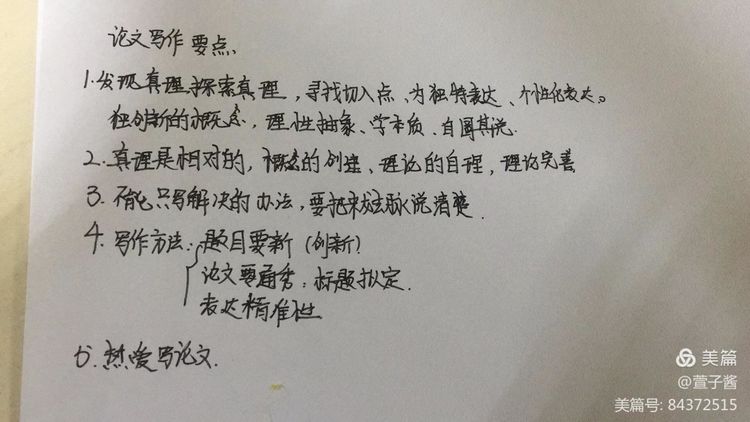 论文写作要点、
1.发现真理探索真理，寻找切入点、为独特表达、个性化表达。
独创新的概念，理性抽象、学本质、自圆其说.
2.真理是相对的，概念的创造、理论的自理，理论完善
3.不能只写解决的办法，要把来龙去脉说清楚.
4.写作方法：题目要新（创新）
论文要通秀：标题拟定.
表达精准性
5.热爱写论文.
美篇
@萱子酱
美篇号: 84372515